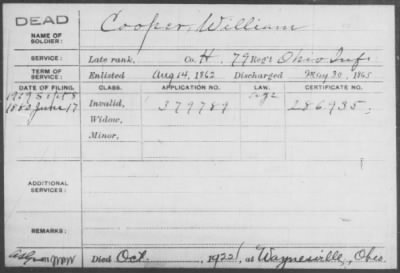 DEAD
Cooper, William
NAME OF SOLDIER:
SERVICE: Late rank, Co. H. 79 Reg't Ohio Inf.
TERM OF SERVICE: Enlisted Aug 14, 1862 Discharged May 30, 1865
DATE OF FILING. CLASS. APPLICATION NO. LAW. CERTIFICATE NO.
Invalid, 379789 286935.
1880 June 17
Widow,
Minor,
ADDITIONAL SERVICES:
REMARKS:
Died Oct , 1922, at Waynesville, Ohio.